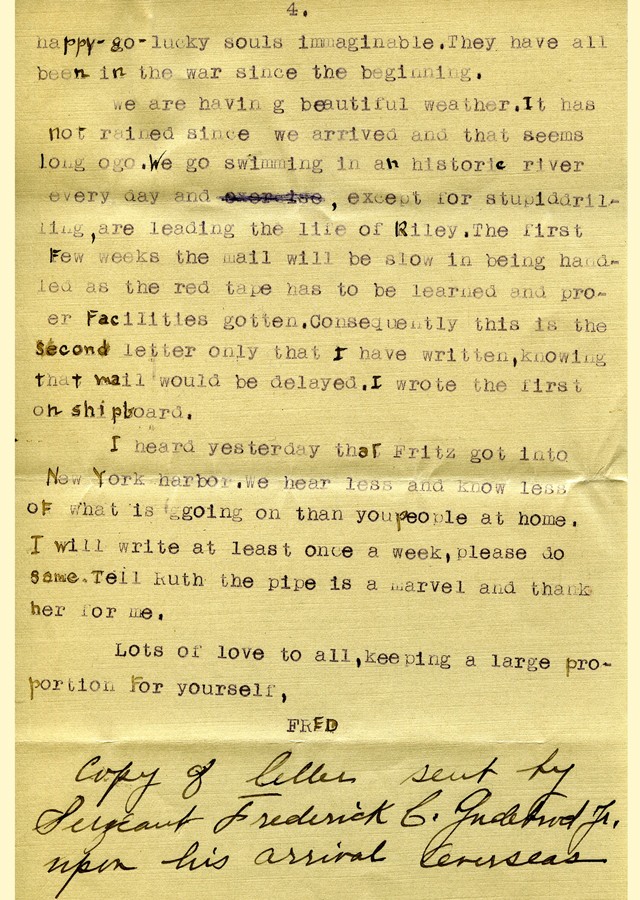 4.
happy-go-lucky souls immaginable.They have all
been in the war since the beginning.
we are havin g beautiful weather.It has
not rained since we arrived and that seems
long ogo.We go swimming in an historic river
every day and exercise, except for stupiddril-
ling,are leading the life of Riley.The first
Few weeks the mail will be slow in being hand-
led as the red tape has to be learned and pro-
er Facilities gotten.Consequently this is the
second letter only that I have written,knowing
that mail would be delayed.I wrote the first
on shipboard.
I heard yesterday that Fritz got into
New York harbor.We hear less and know less
of what is ggoing on than youpeople at home.
I will write at least once a week,please do
same.Tell Ruth the pipe is a marvel and thank
her for me.
Lots of love to all,keeping a large pro-
portion For yourself,
FRED
Copy of letter sent by
Sergeant Frederick C. Gudebrod Jr.
upon his arrival overseas